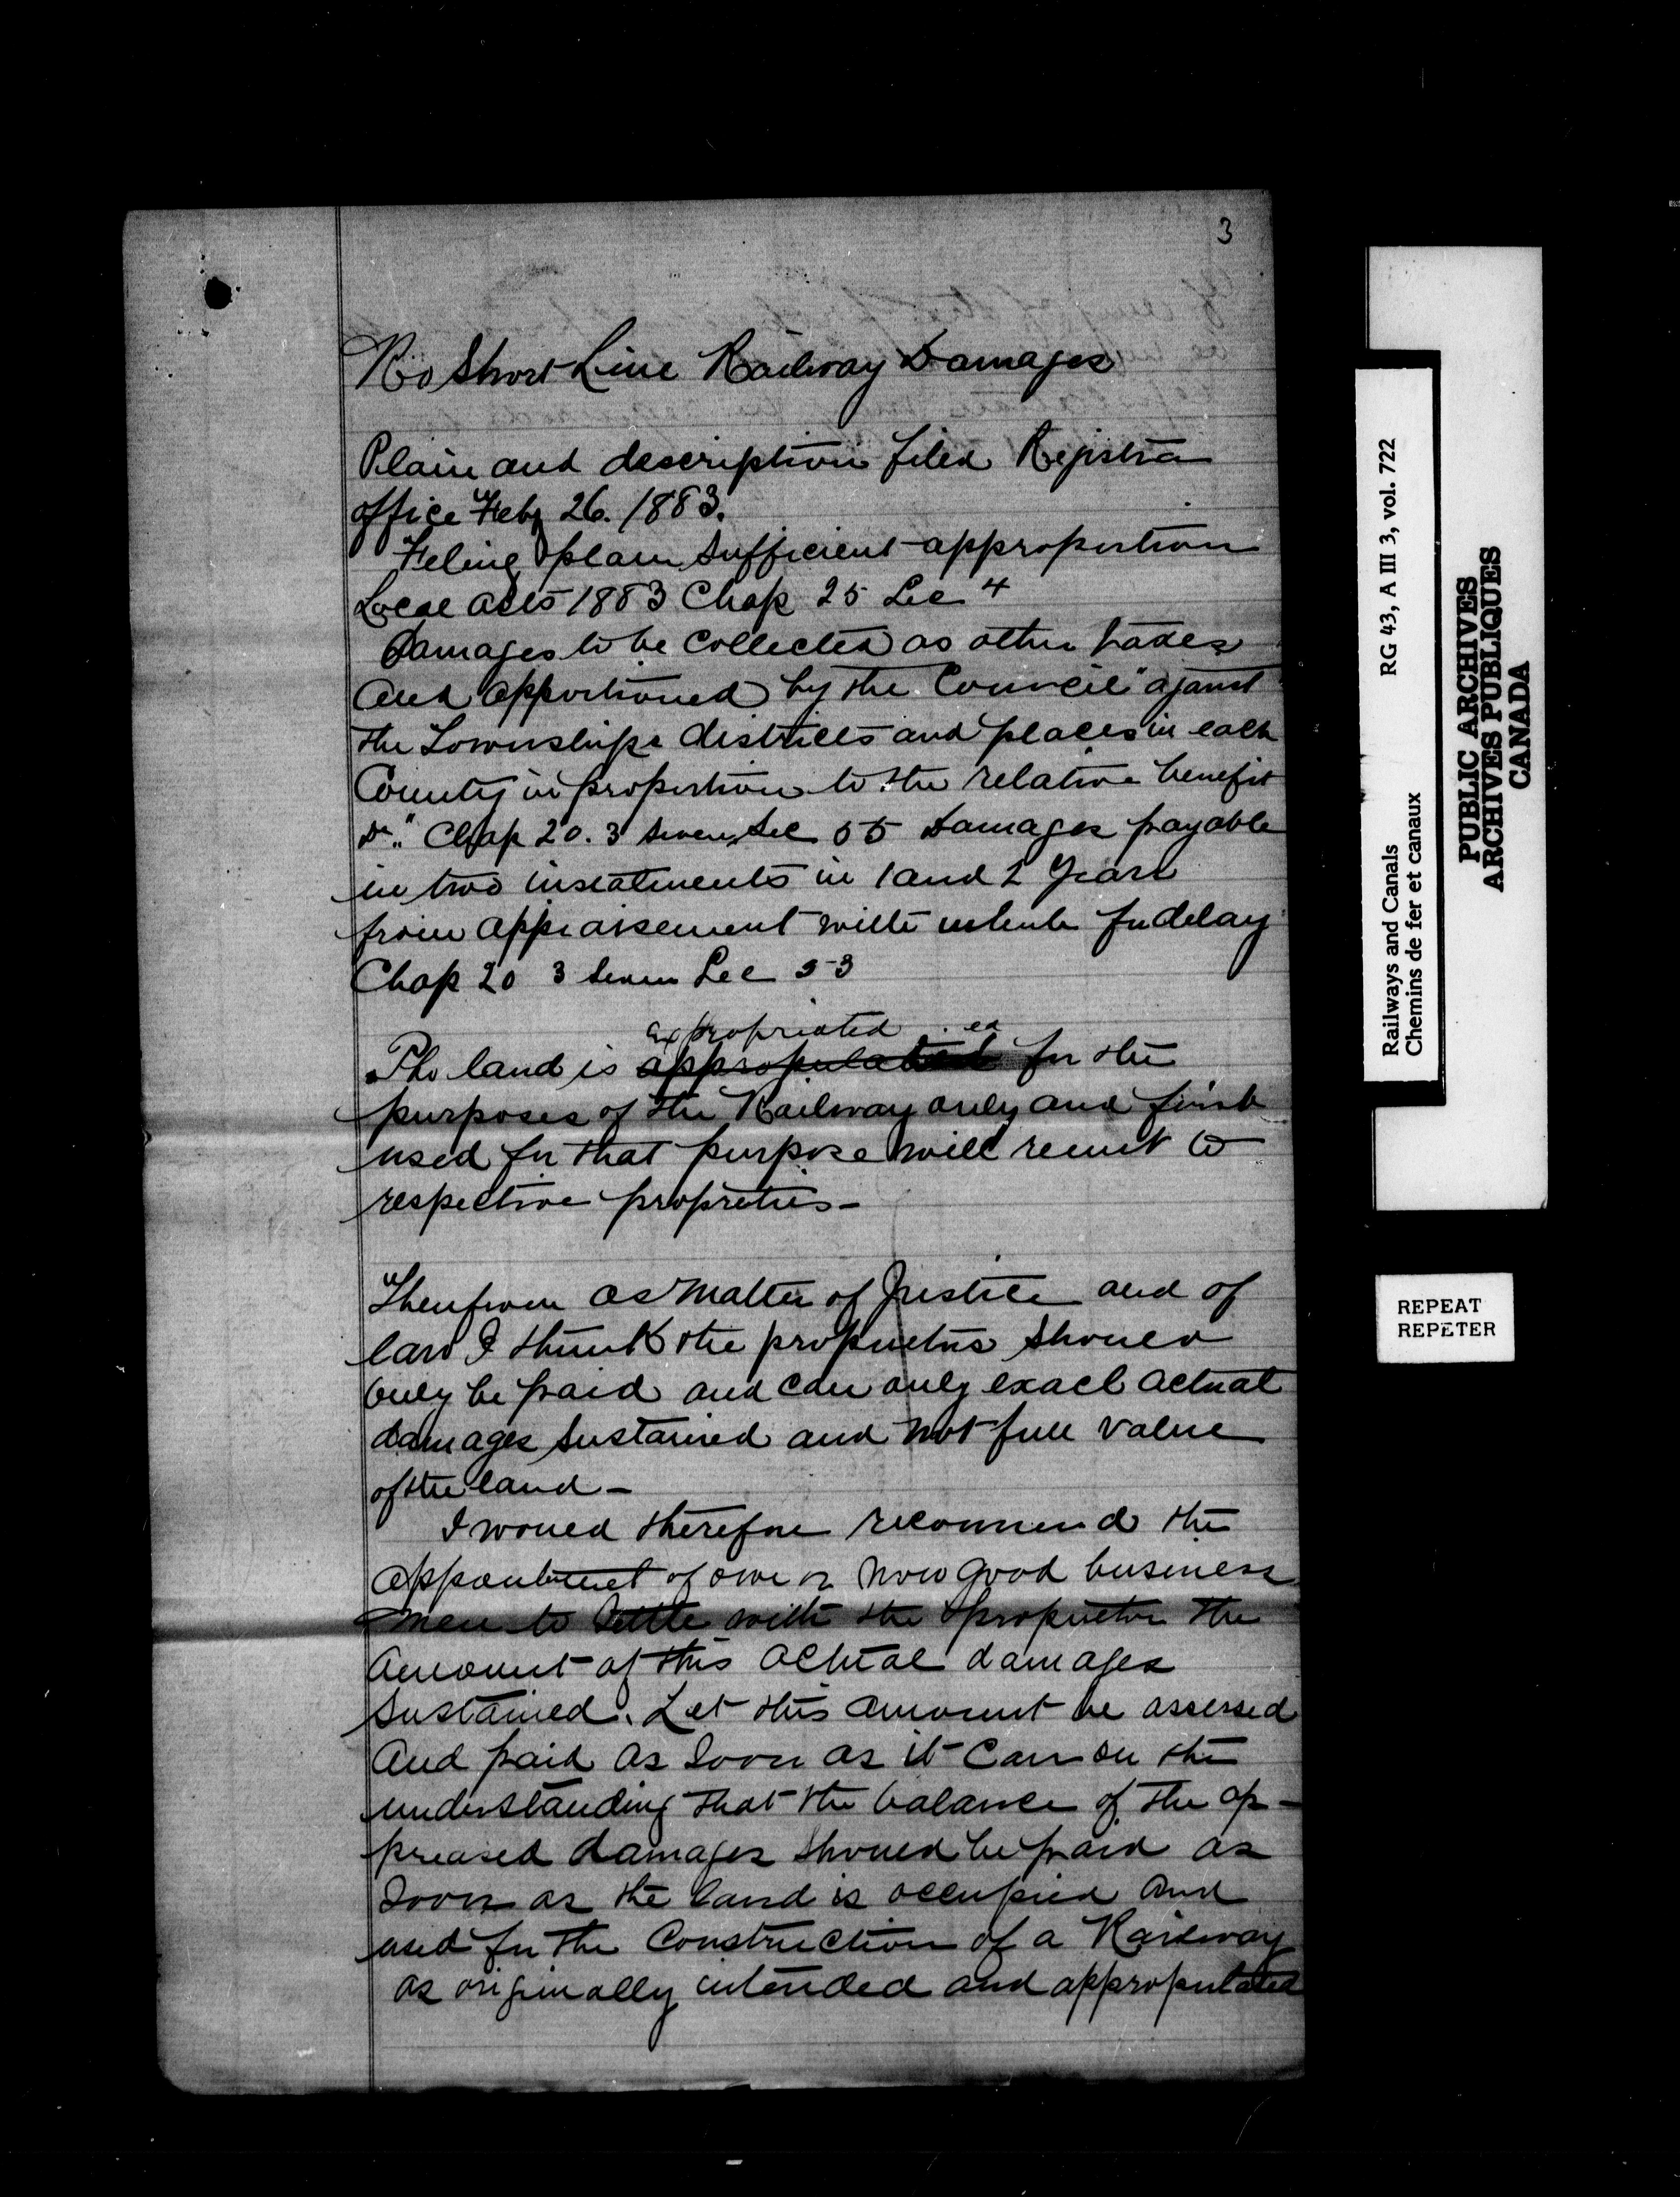 3
Re Short Line Railway Damages
Plan and description filed Registra
office Feby 26. 1883.
Filing plan sufficient appropriation
Local acts 1883 Chap 25 Sec 4
Damages to be collected as other rates
and apportioned by the Council "against
the Townships districts and places in each
County in proportion to the relative benefit
&c" Chap 20. 3 Series Sec 55 Damages payable
in two instalments in 1 and 2 years
from appraisement with interest for delay
Chap 20 3 Series Sec 53
expropriated
The land is for the
purposes of the Railway only and
used for that purpose will revert to
respective proprietors –
Therefrom as matter of Justice and of
law I think the proprietors should
only be paid and can only exact actual
damages sustained and not full value
of the land –
I would therefore recommend the
appointment of one or more good business
men to settle with the proprietor the
amount of this actual damages
sustained. Let this amount be assessed
and paid as soon as it can on the
understanding that the balance of the ap-
praised damages should be paid as
soon as the land is occupied and
used for the Construction of a Railway
as originally intended and appropriated
Railways and Canals RG 43, A III 3, vol. 722
Chemins de fer et canaux
PUBLIC ARCHIVES
ARCHIVES PUBLIQUES
CANADA
REPEAT
REPETER